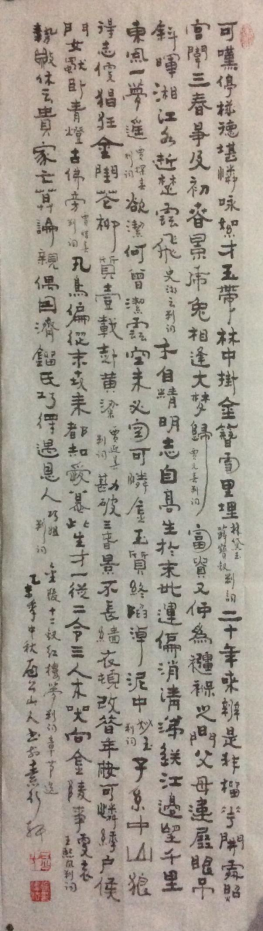 可嘆停機德堪憐咏絮才玉帶林中掛金簪雪里埋林黛玉薛寶釵判词二十年來辨是非榴花開處照
宮闈三春爭及初春景虎兔相逢大梦歸賈元春判词富貴又何為襁褓之间父母違展眼吊
斜暉湘江水逝楚雲飛史湘云判词才自精明志自高生於末世運偏消清涕送江邊望千里
東風一夢遥賈探春判词欲潔何曾潔雲空未必空可憐金玉質終陷淖泥中妙玉判词子系中山狼
得志便猖狂金閨花柳質壹載赴黄粱賈迎春判词勘破三春景不長緇衣頓改昔年妝可憐繡户侯
門女獨卧青燈古佛旁賈惜春判词凡鳥偏從末世來都知愛慕此生才一從二令三人木哭向金陵事更哀王熙鳳判词
勢敗休云貴家亡莫論親偶因濟劉氏巧得遇恩人巧姐判词金陵十二釵紅樓夢判词章節選
乙未年中秋山人書於素行軒